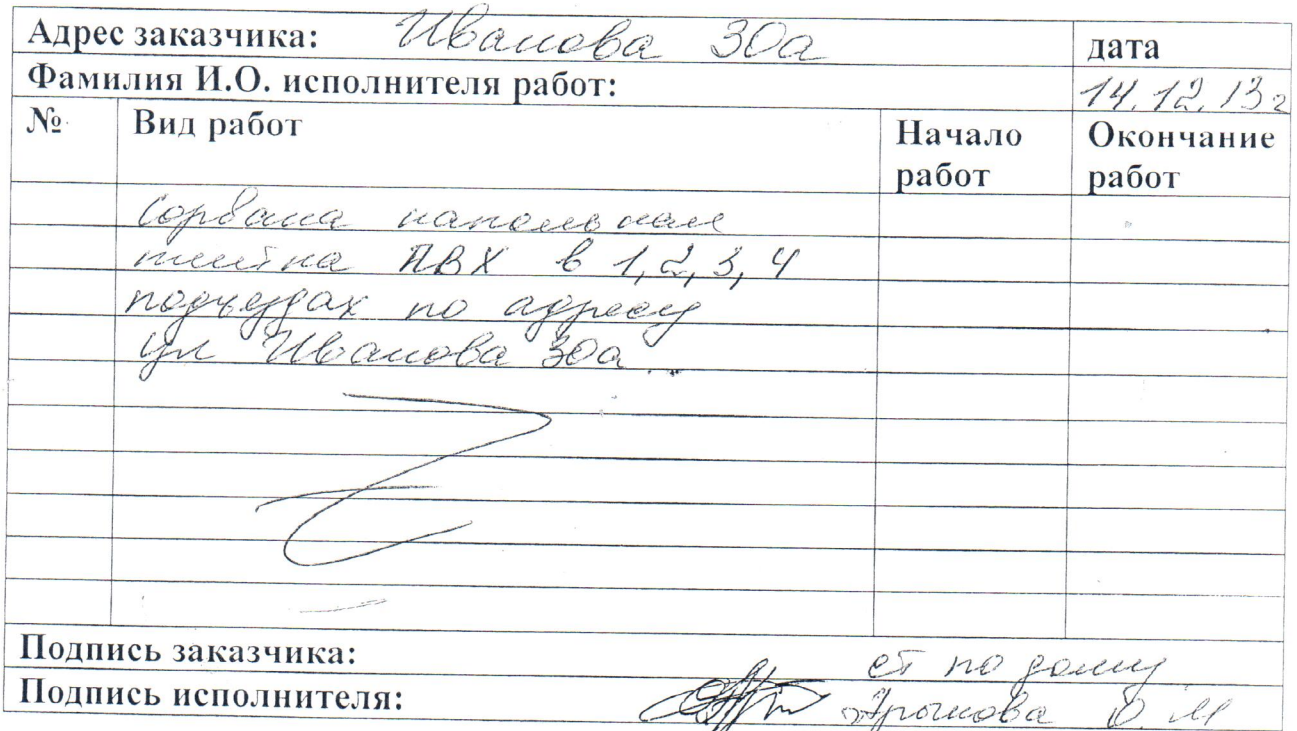 Адрес заказчика: Иванова 30а
дата
Фамилия И.О. исполнителя работ:
14.12.13г
№ Вид работ Начало работ Окончание работ
сорвана напольная
плитка ПВХ в 1,2,3,4
подъездах по адресу
ул Иванова 30а
Подпись заказчика: ст по дому
Подпись исполнителя: